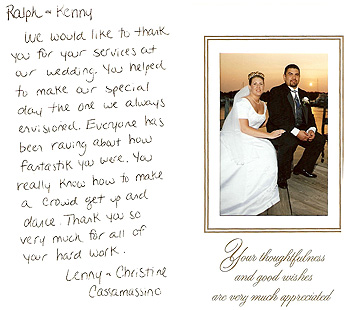 Ralph + Kenny
We would like to thank
you for your services at
our wedding. You helped
to make our special
day the one we always
envisioned. Everyone has
been raving about how
fantastik you were. You
really know how to make
a crowd get up and
dance. Thank you so
very much for all of
your hard work.
Lenny + Christine
Cassamassino
Your thoughtfulness
and good wishes
are very much appreciated